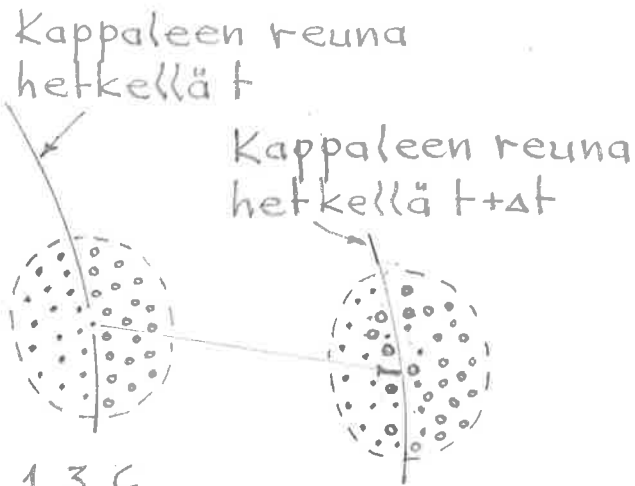 Kappaleen reuna
hetkellä t
Kappaleen reuna
hetkellä t+Δt